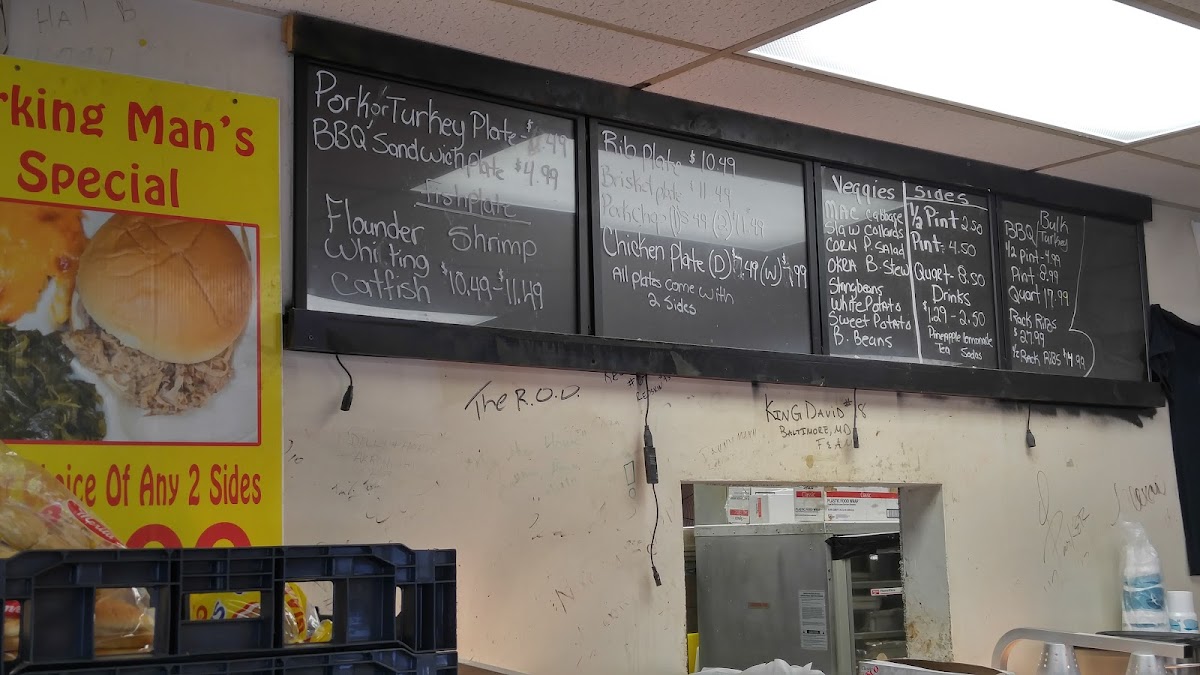 rking Man's
Special
oice Of Any 2 Sides
Pork or Turkey Plate - $ .49
BBQ Sandwich plate $4.99
Fishplate
Flounder
Shrimp
Whiting
Catfish $10.49 - $11.49
Rib Plate $10.49
Brisket plate $11.49
Chicken Plate (D) $7.49 (W) $7.99
All plates come with
2 Sides
Veggies
MAC Cabbage
Slaw Collards
CORN P. Salad
OKRA B. Stew
Stringbeans
White Potato
Sweet Potato
B. Beans
Sides
1/2 Pint 2.50
Pint - 4.50
Quart - 8.50
Drinks
$1.29 - 2.50
Pineapple lemonade
Tea Sodas
Bulk
BBQ / Turkey
1/2 Pint - 4.99
Pint 8.99
Quart 17.99
Rack Ribs
$27.99
1/2 Rack Ribs $14.99
The R.O.D.
KING DAVID #8
BALTIMORE, MD